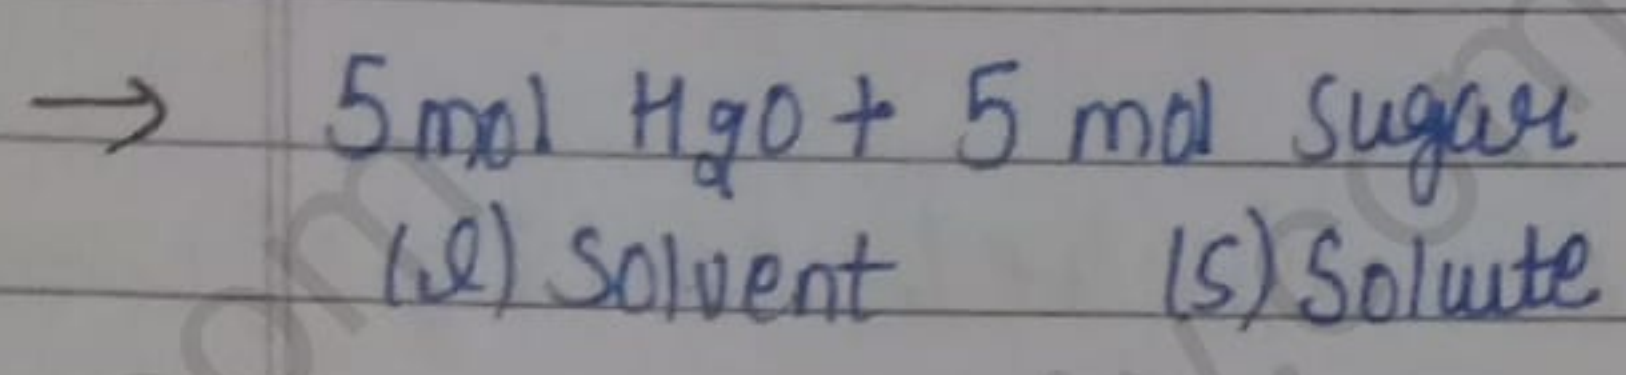 → 5 mol H₂O + 5 mol Sugar
(l) Solvent (s) Solute